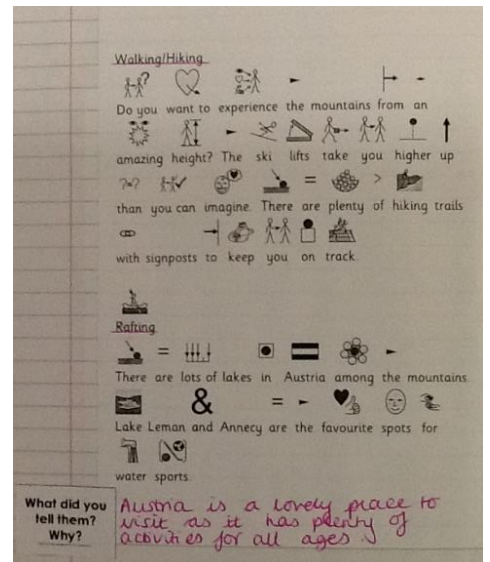 Walking/Hiking
Do you want to experience the mountains from an
amazing height? The ski lifts take you higher up
than you can imagine. There are plenty of hiking trails
with signposts to keep you on track.
Rafting
There are lots of lakes in Austria among the mountains.
Lake Leman and Annecy are the favourite spots for
water sports.
What did you
tell them?
Why?
Austria is a lovely place to
visit as it has plenty of
activities for all ages.